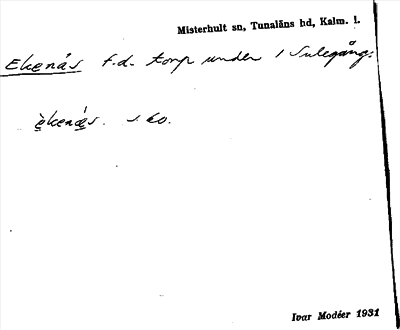 Misterhult sn, Tunaläns hd, Kalm. l.
Ekenäs f.d. torp under 1 Sulegång.
èkenǽs. s. 60.
Ivar Modéer 1931